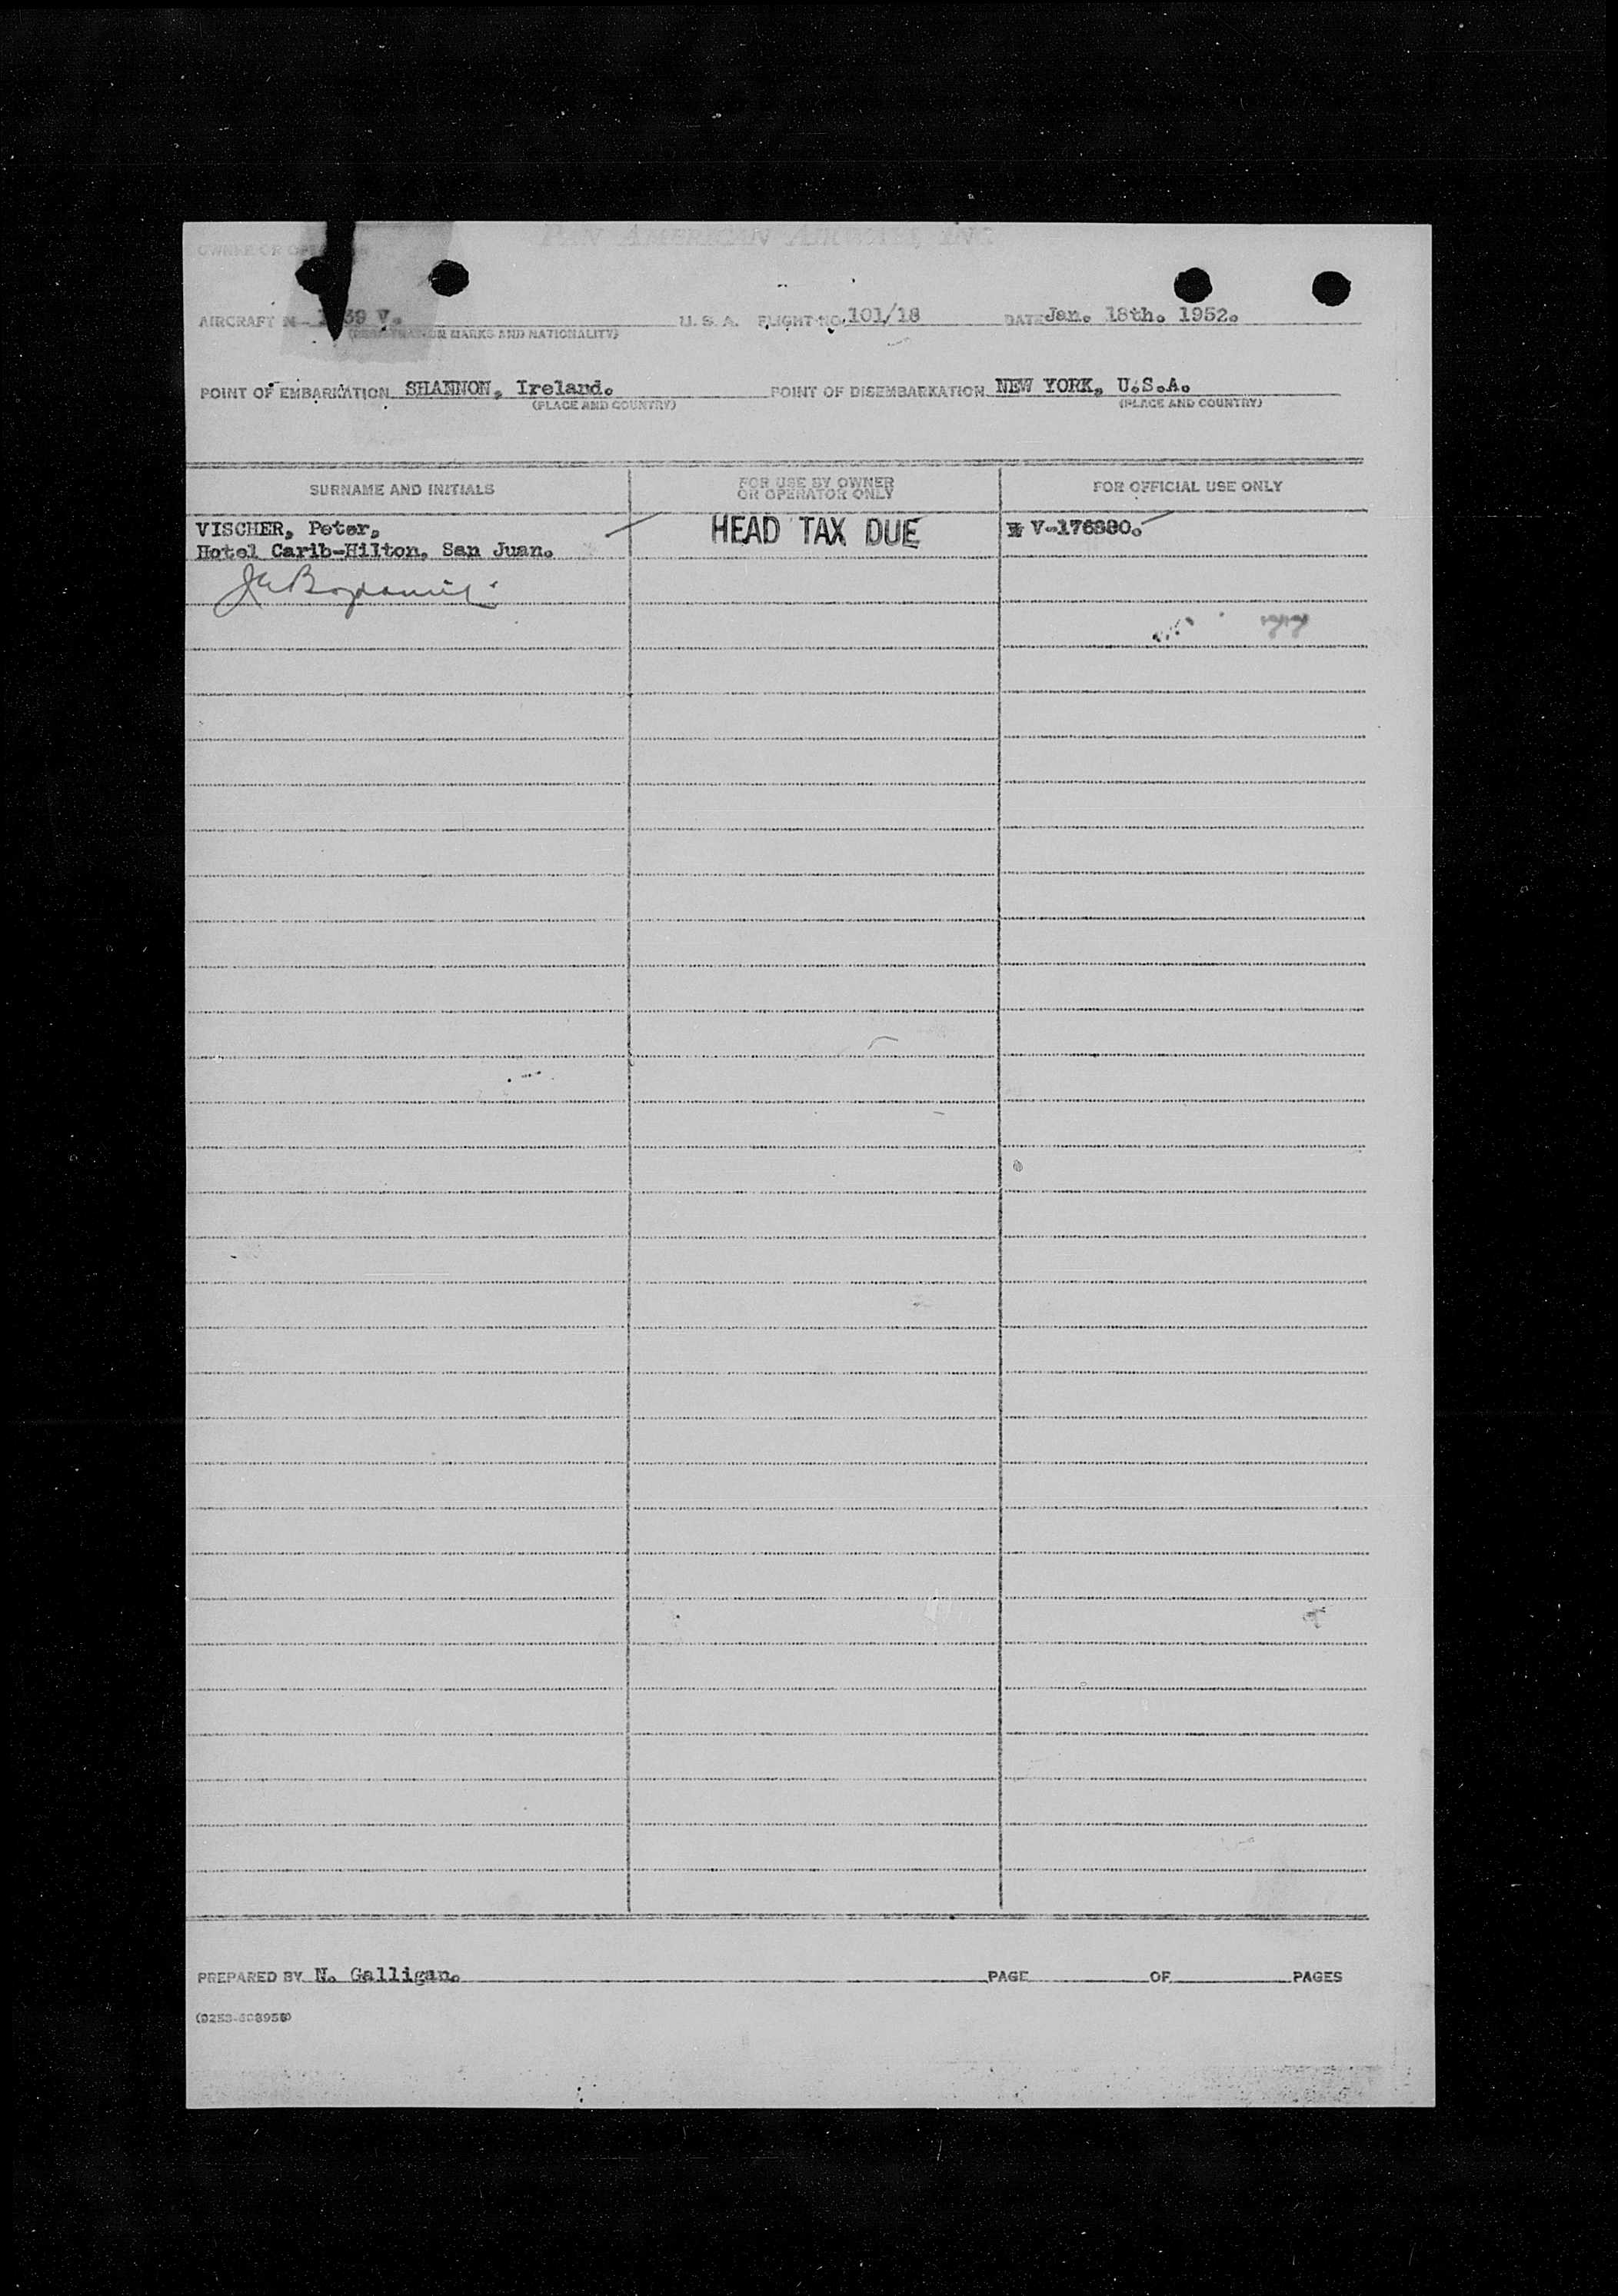 OWNER OR
PAN AMERICAN AIRWAYS, INC
AIRCRAFT N- 39 V. U. S. A. FLIGHT NO. 101/18 DATE Jan. 18th. 1952.
OR MARKS AND NATIONALITY)
POINT OF EMBARKATION SHANNON, Ireland. POINT OF DISEMBARKATION NEW YORK, U.S.A.
(PLACE AND COUNTRY) (PLACE AND COUNTRY)
SURNAME AND INITIALS FOR USE BY OWNER OR OPERATOR ONLY FOR OFFICIAL USE ONLY
VISCHER, Peter, HEAD TAX DUE V-176880.
Hotel Carib-Hilton, San Juan.
77
PREPARED BY N. Galligan. PAGE OF PAGES